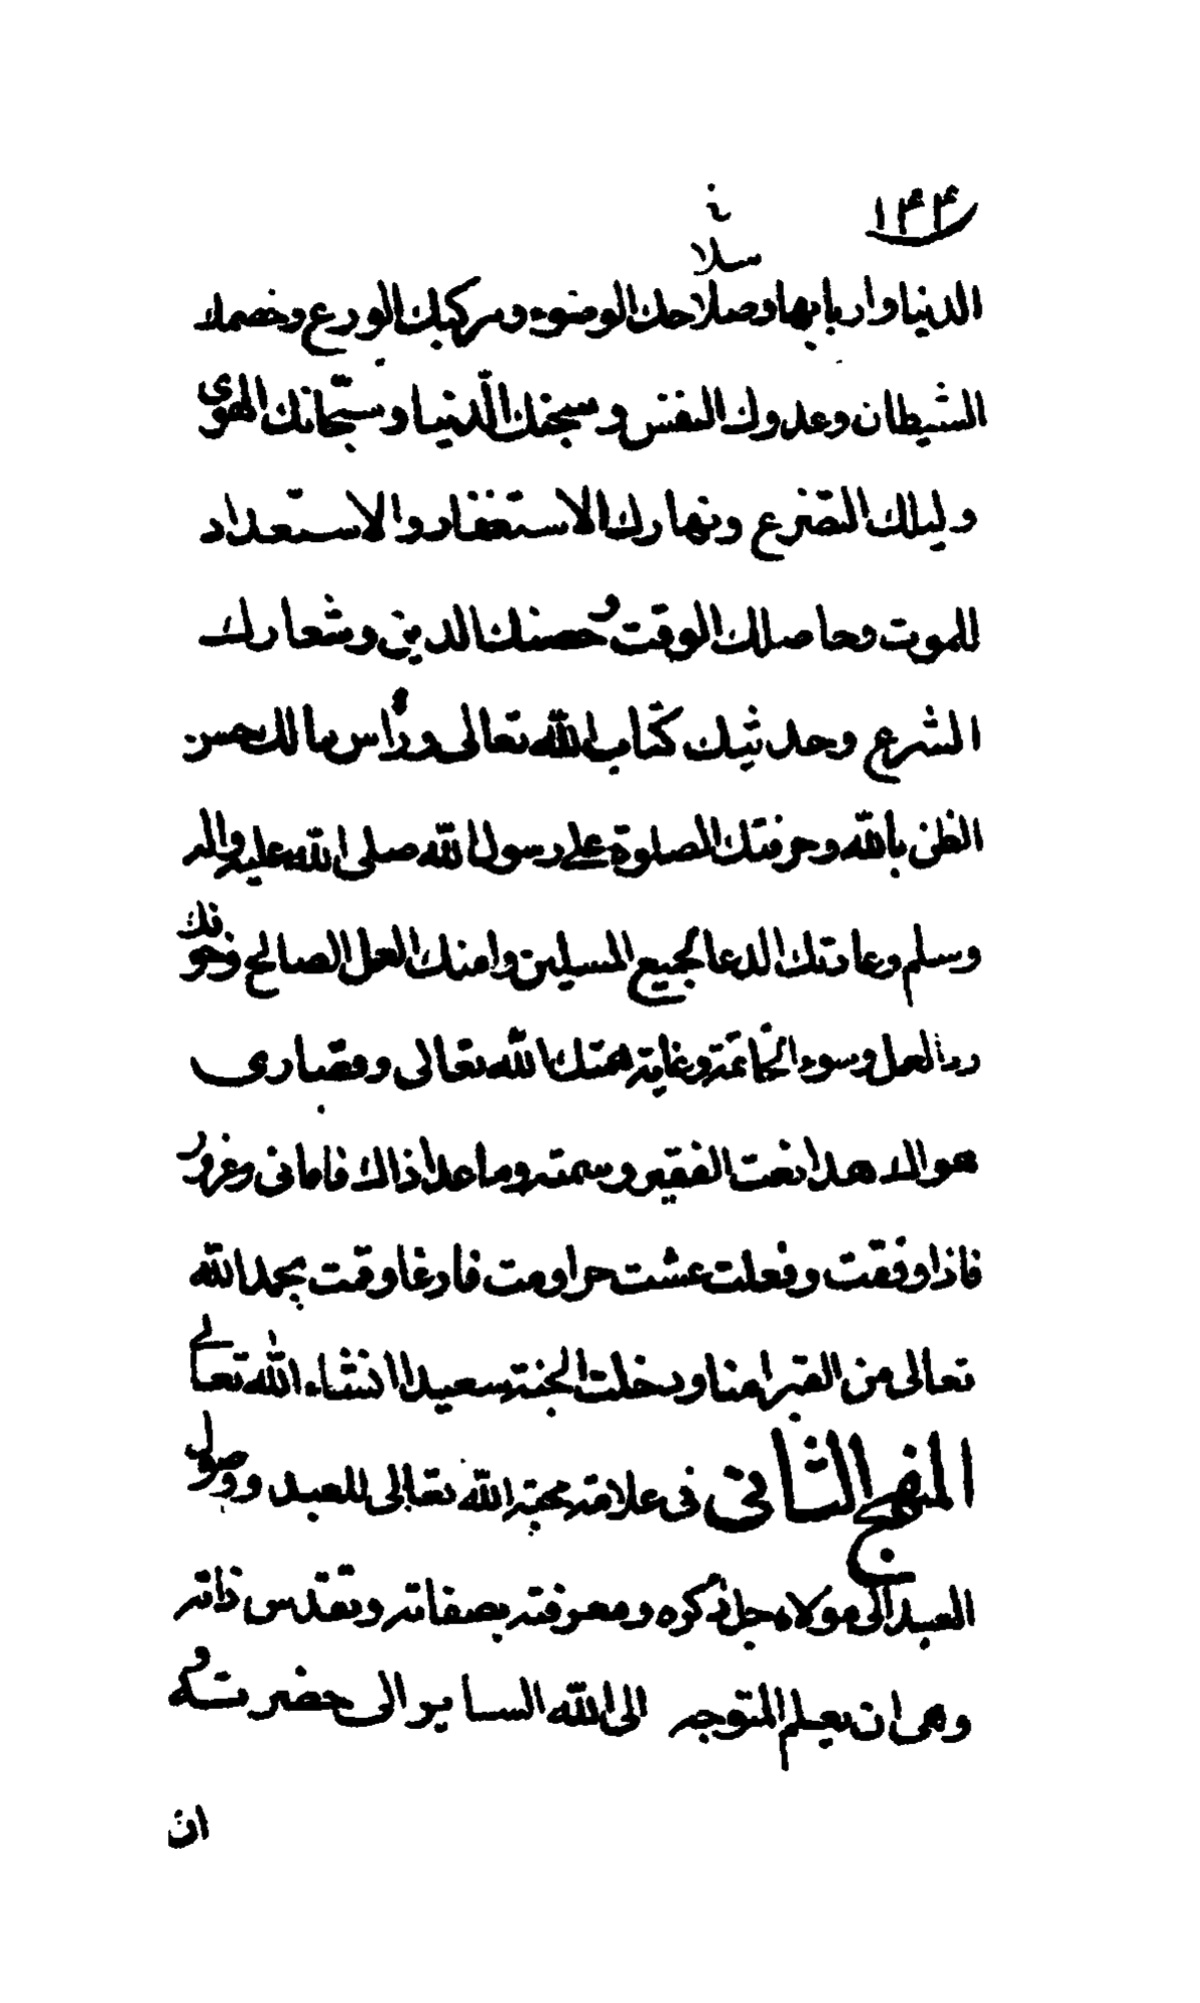 ١٣٣
سلا
الدنيا واربابها وصلاحك الوضوء ومركبك الورع وخصمك
الشيطان وعدوك النفس وسجنك الدنيا وسجانك الهوى
وليلك التضرع ونهارك الاستغفار والاستعداد
للموت وحاصلك الوقت وحصنك الدين وشعارك
الشرع وحديثك كتاب الله تعالى وراس مالك حسن
الظن بالله وحرفتك الصلوة على رسول الله صلى الله عليه واله
وسلم وعادتك الدعا لجميع المسلمين وامنك العمل الصالح وخوفك
رد العمل وسوء الخاتمة وغاية همتك الله تعالى وقصارى
هواك هذا نعت الفقير وسمته وما عدا ذاك فامانى وغرور
فاذا وفقت وفعلت عشت حرا ومت فارغا وقمت بحمد الله
تعالى من القبر امنا ودخلت الجنة سعيدا انشاء الله تعالى
المنهج الثانى فى علامة محبة الله تعالى للعبد ووصول
العبد الى مولاه جل ذكره ومعرفته بصفاته وتقدس ذاته
وهى ان يعلم المتوجه الى الله الساير الى حضرته
ان